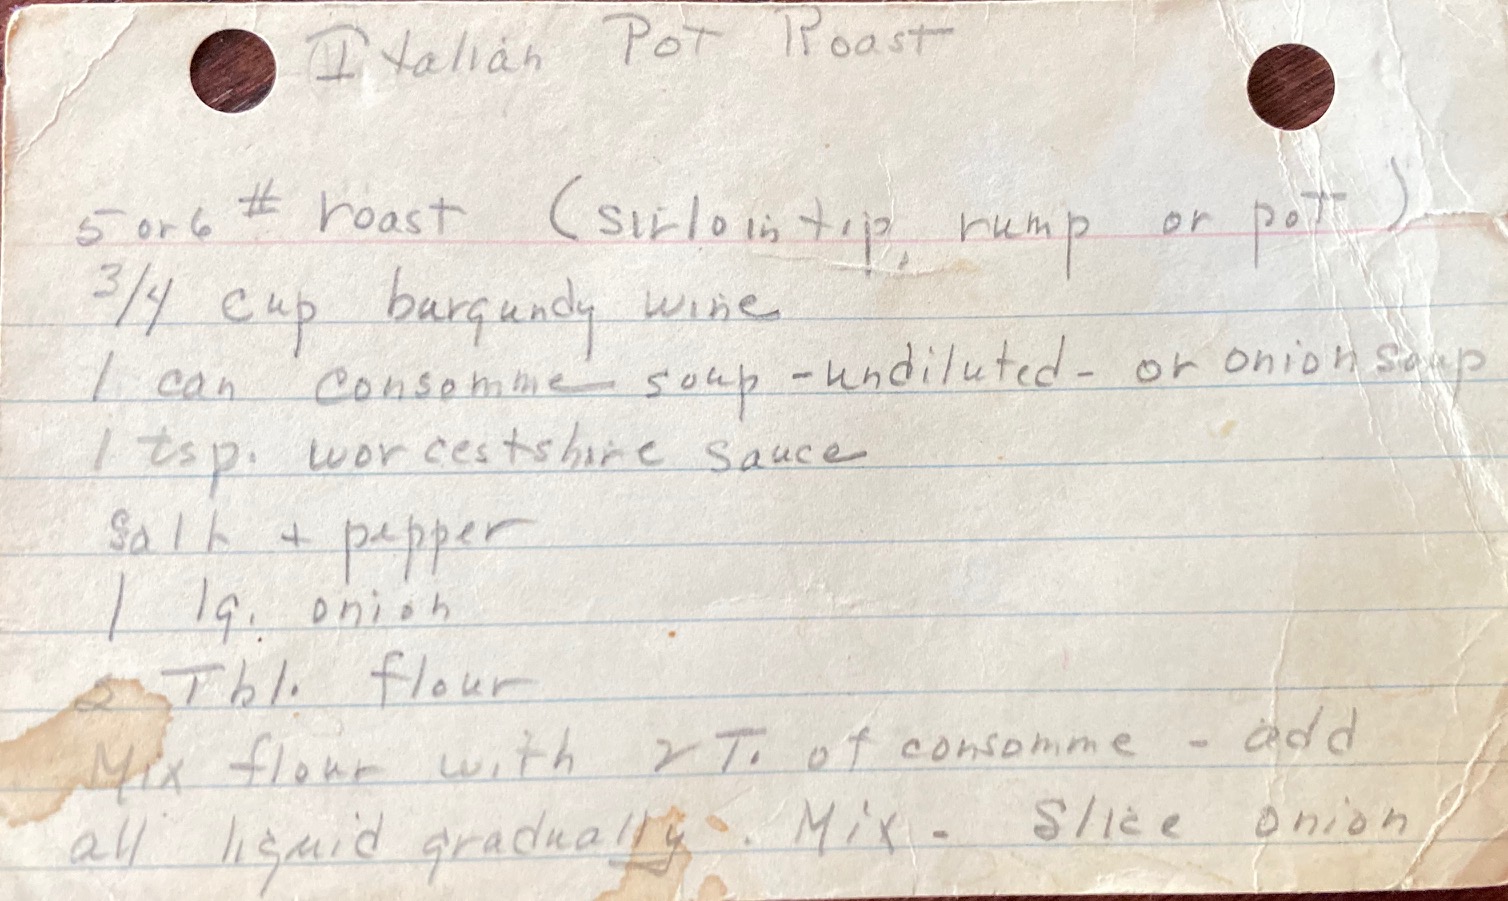 Italian Pot Roast
5 or 6 # roast (sirloin tip, rump or pot)
3/4 cup burgundy wine
1 can consomme soup - undiluted - or onion soup
1 tsp. worcestshire sauce
Salt + pepper
1 lg. onion
2 Tbl. flour
Mix flour with 2 T. of consomme - add
all liquid gradually. Mix - Slice onion